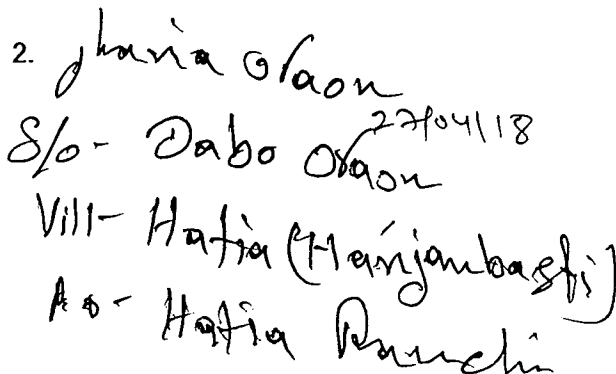 2. Jharia Oraon
S/o- Dabo Oraon
27/04/18
Vill- Hatia (Harijanbasti)
P.o- Hatia Ranchi